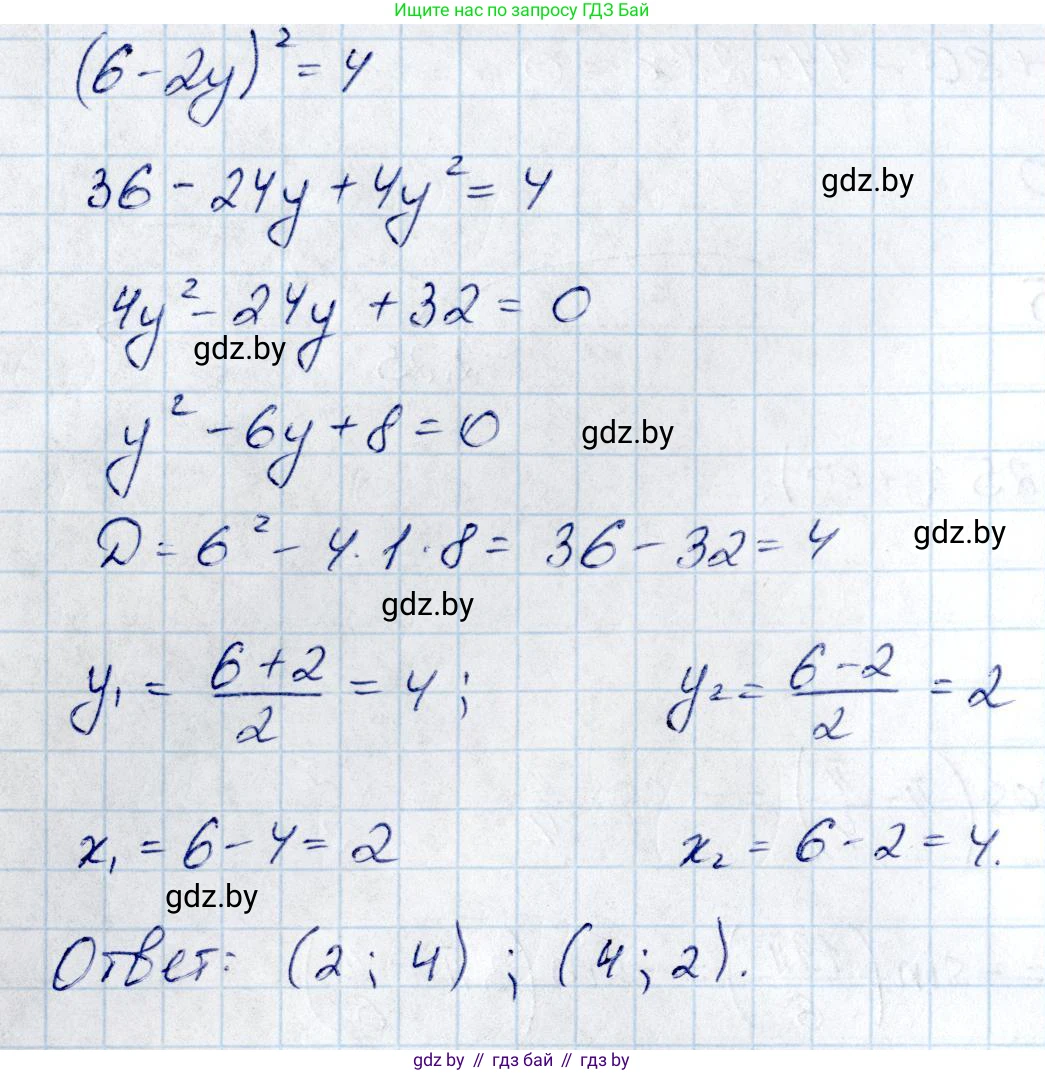 Ищите нас по запросу ГДЗ Бай
(6 - 2y)² = 4
36 - 24y + 4y² = 4
gdz.by
4y² - 24y + 32 = 0
gdz.by
y² - 6y + 8 = 0
gdz.by
D = 6² - 4 · 1 · 8 = 36 - 32 = 4
gdz.by
gdz.by
y₁ = (6 + 2)/2 = 4 ; y₂ = (6 - 2)/2 = 2
x₁ = 6 - 4 = 2 x₂ = 6 - 2 = 4.
gdz.by
Ответ: (2 ; 4) ; (4 ; 2).
gdz.by // гдз бай // gdz.by